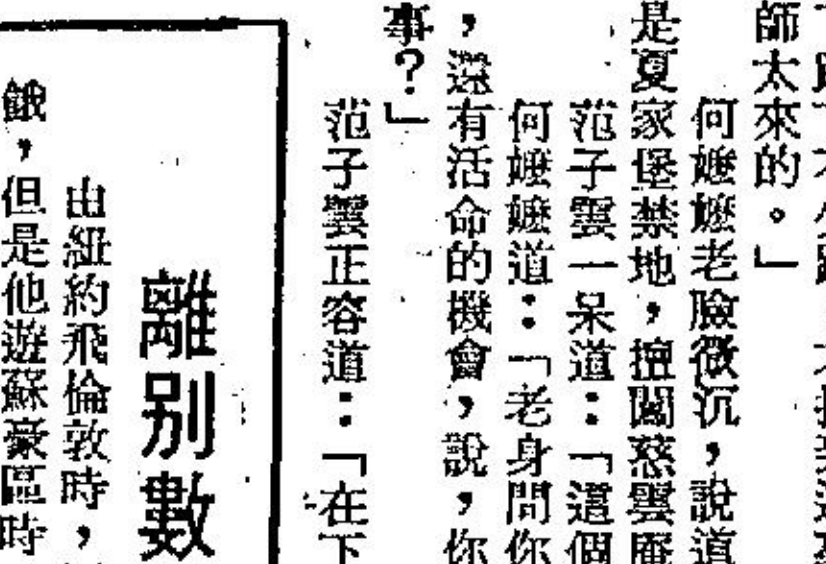 師太來的。」
何嬤嬤老臉微沉,說道
是夏家堡禁地,擅闖慈雲庵
范子雲一呆道:「這個
何嬤嬤道:「老身問你
,還有活命的機會,說,你
事?」
范子雲正容道:「在下
離別數
由紐約飛倫敦時,
餓,但是他遊蘇豪區時